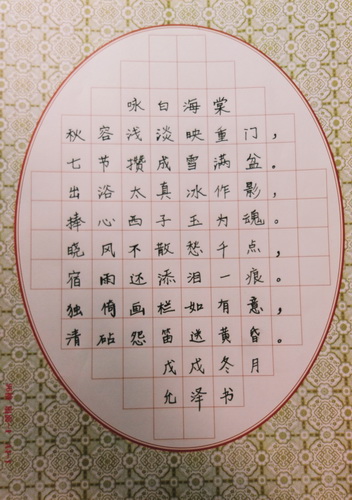 咏白海棠
秋容浅淡映重门，
七节攒成雪满盆。
出浴太真冰作影，
捧心西子玉为魂。
晓风不散愁千点，
宿雨还添泪一痕。
独倚画栏如有意，
清砧怨笛送黄昏。
戊戌冬月
允泽书